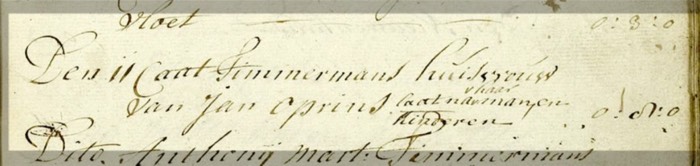 vloet o: 3: o
Den 11 Caat Timmermans huisvrouw
van Jan Oprins laat na haar man, en
kinderen o: 8: o
Dito Anthonij Mart: Timmermans